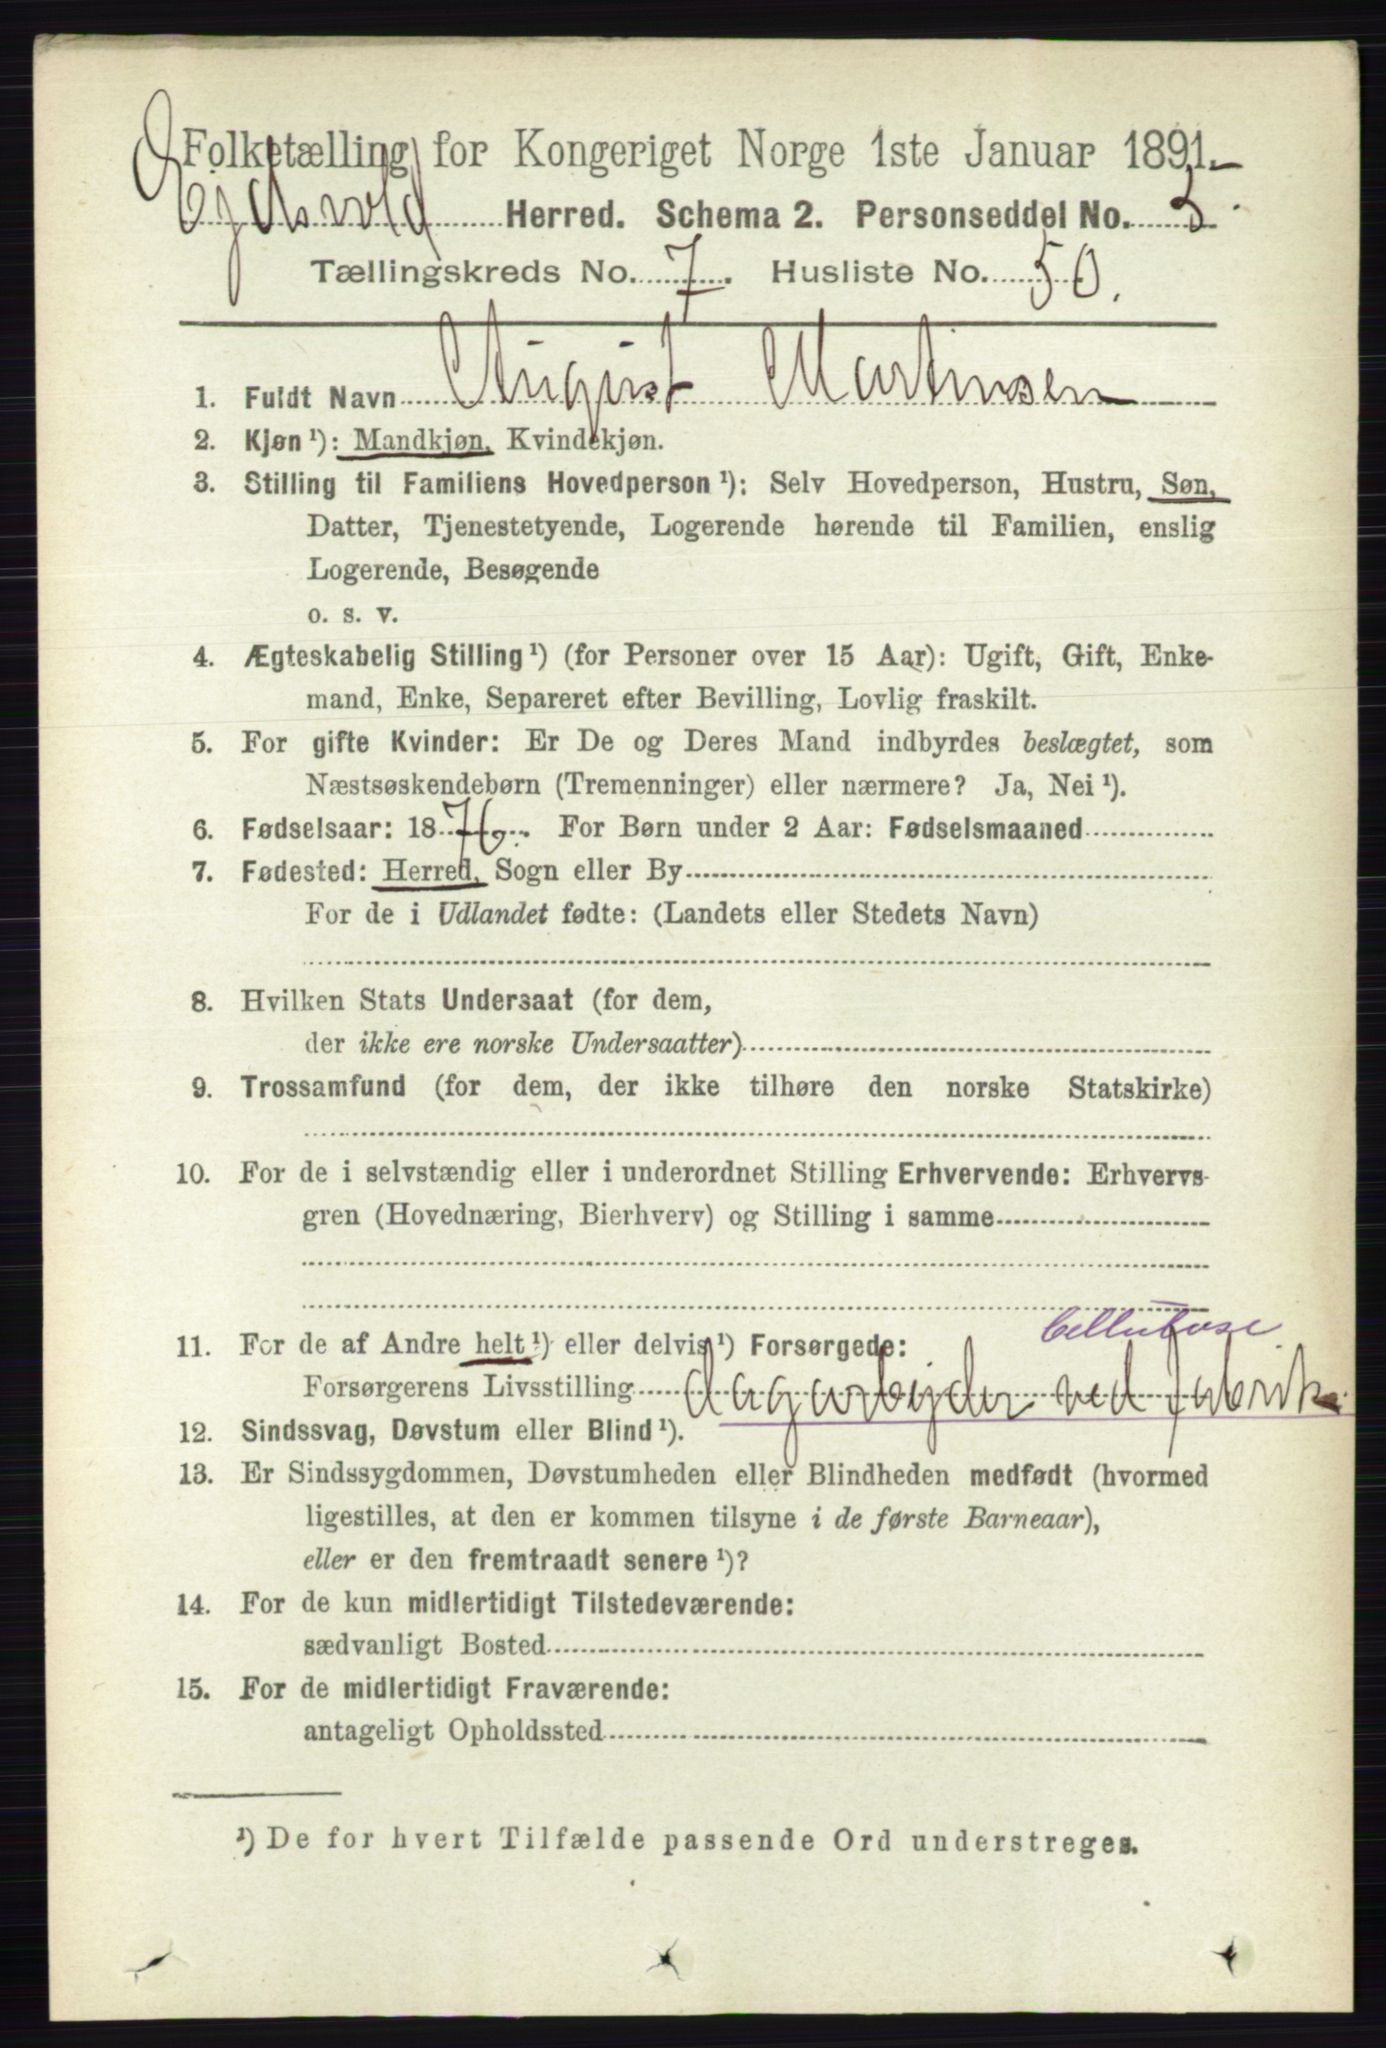 Folketælling for Kongeriget Norge 1ste Januar 1891.
Ejdsvold Herred. Schema 2. Personseddel No. 3.
Tællingskreds No. 7. Husliste No. 50.
1. Fuldt Navn August Martinsen
2. Kjøn ¹): Mandkjøn, Kvindekjøn.
3. Stilling til Familiens Hovedperson ¹): Selv Hovedperson, Hustru, Søn,
Datter, Tjenestetyende, Logerende hørende til Familien, enslig
Logerende, Besøgende
o. s. v.
4. Ægteskabelig Stilling ¹) (for Personer over 15 Aar): Ugift, Gift, Enke-
mand, Enke, Separeret efter Bevilling, Lovlig fraskilt.
5. For gifte Kvinder: Er De og Deres Mand indbyrdes beslægtet, som
Næstsøskendebørn (Tremenninger) eller nærmere? Ja, Nei ¹).
6. Fødselsaar: 1876. For Børn under 2 Aar: Fødselsmaaned
7. Fødested: Herred, Sogn eller By
For de i Udlandet fødte: (Landets eller Stedets Navn)
8. Hvilken Stats Undersaat (for dem,
der ikke ere norske Undersaatter)
9. Trossamfund (for dem, der ikke tilhøre den norske Statskirke)
10. For de i selvstændig eller i underordnet Stilling Erhvervende: Erhvervs-
gren (Hovednæring, Bierhverv) og Stilling i samme
Cellulose
11. For de af Andre helt ¹) eller delvis ¹) Forsørgede:
Forsørgerens Livsstilling dagarbejder ved Fabrik.
12. Sindssvag, Døvstum eller Blind ¹).
13. Er Sindssygdommen, Døvstumheden eller Blindheden medfødt (hvormed
ligestilles, at den er kommen tilsyne i de første Barneaar),
eller er den fremtraadt senere ¹)?
14. For de kun midlertidigt Tilstedeværende:
sædvanligt Bosted
15. For de midlertidigt Fraværende:
antageligt Opholdssted
¹) De for hvert Tilfælde passende Ord understreges.